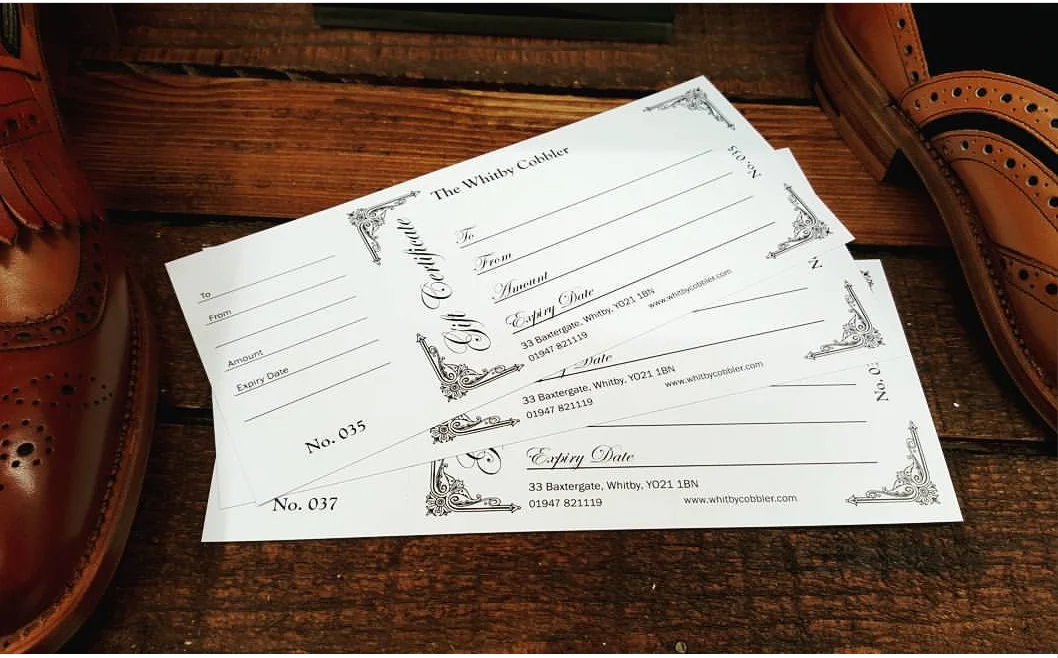 To
From
Amount
Expiry Date
No. 035
Gift Certificate
The Whitby Cobbler
No. 035
To
From
Amount
Expiry Date
33 Baxtergate, Whitby, YO21 1BN
01947 821119
www.whitbycobbler.com
Date
33 Baxtergate, Whitby, YO21 1BN
01947 821119
www.whitbycobbler.com
No. 037
Expiry Date
33 Baxtergate, Whitby, YO21 1BN
01947 821119
www.whitbycobbler.com